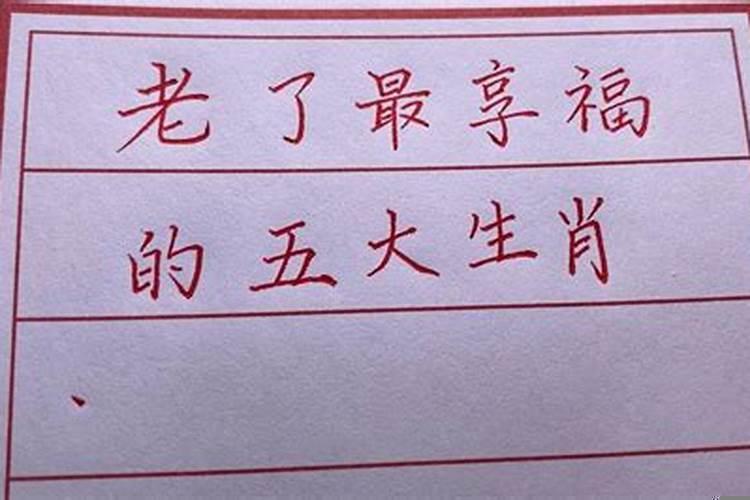 老了最享福
的五大生肖
、